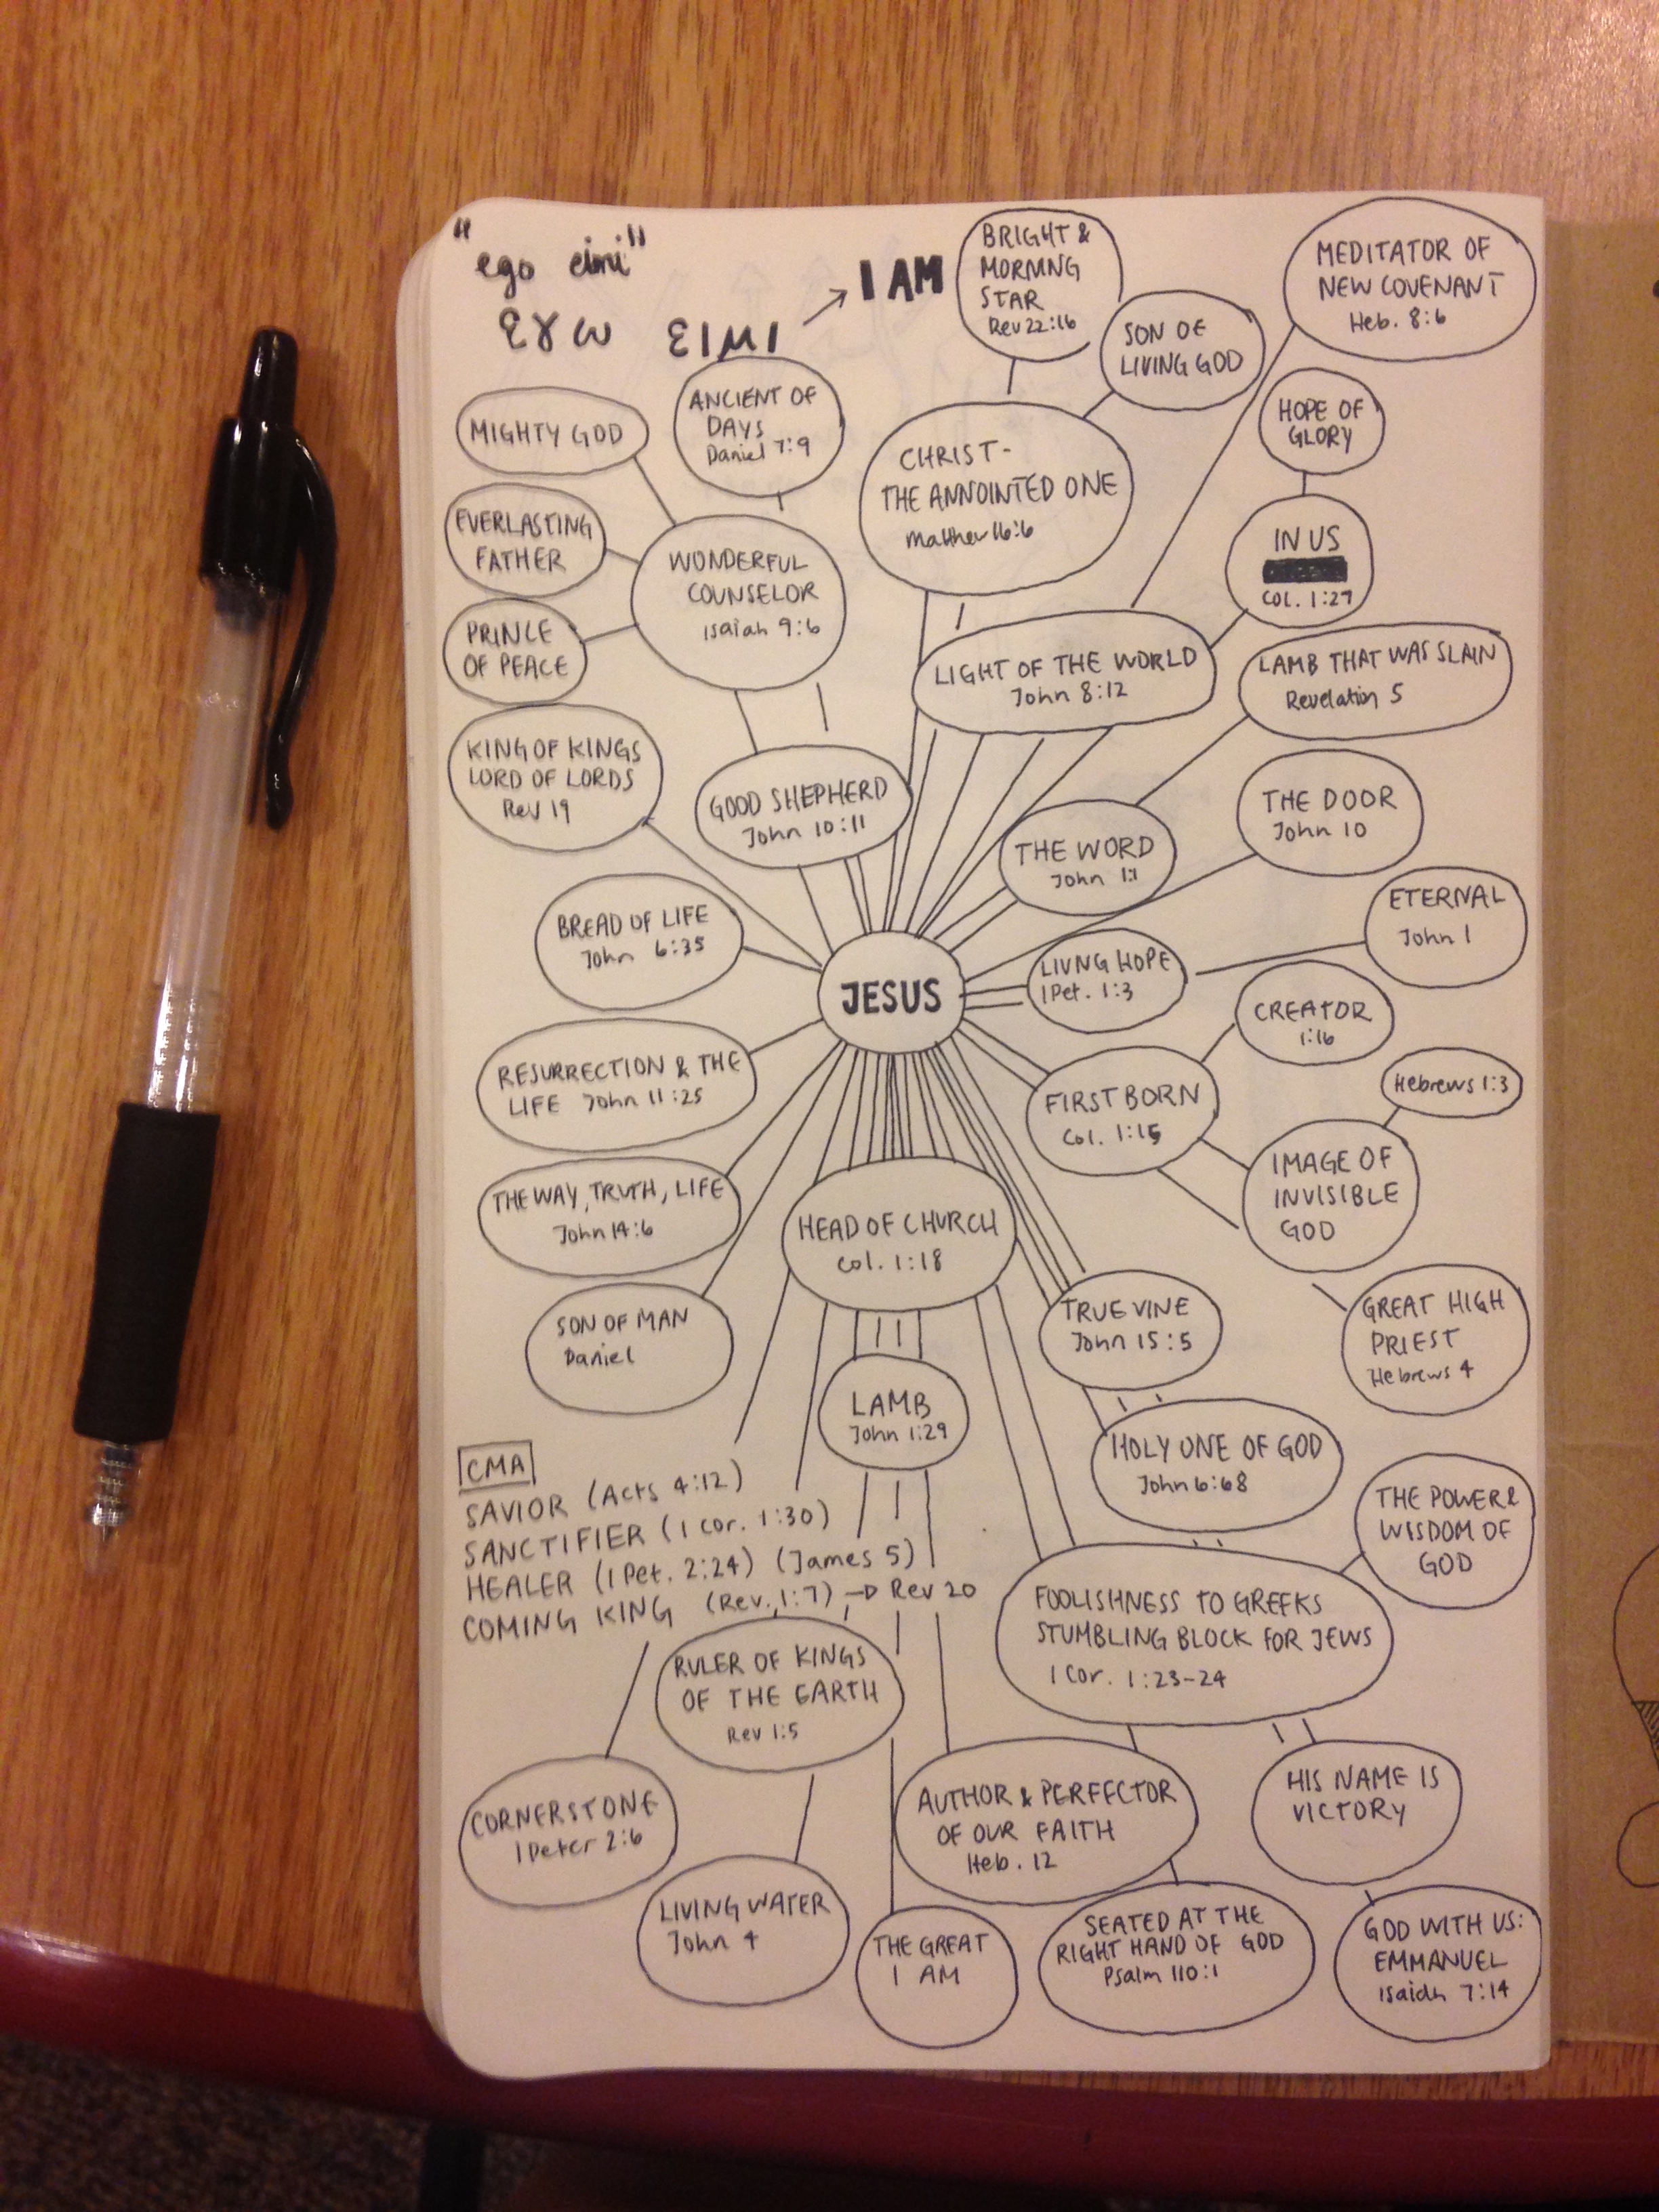 "ego eimi"
εγω ειμι → I AM
BRIGHT &
MORNING
STAR
Rev 22:16
SON OF
LIVING GOD
MEDITATOR OF
NEW COVENANT
Heb. 8:6
MIGHTY GOD
ANCIENT OF
DAYS
Daniel 7:9
CHRIST -
THE ANNOINTED ONE
Matthew 16:6
HOPE OF
GLORY
EVERLASTING
FATHER
WONDERFUL
COUNSELOR
Isaiah 9:6
IN US
COL. 1:27
PRINCE
OF PEACE
LIGHT OF THE WORLD
John 8:12
LAMB THAT WAS SLAIN
Revelation 5
KING OF KINGS
LORD OF LORDS
Rev 19
GOOD SHEPHERD
John 10:11
THE WORD
John 1:1
THE DOOR
John 10
BREAD OF LIFE
John 6:35
JESUS
LIVNG HOPE
1 Pet. 1:3
ETERNAL
John 1
CREATOR
1:16
RESURRECTION & THE
LIFE John 11:25
FIRST BORN
Col. 1:15
Hebrews 1:3
IMAGE OF
INVISIBLE
GOD
THE WAY, TRUTH, LIFE
John 14:6
HEAD OF CHURCH
Col. 1:18
SON OF MAN
Daniel
TRUE VINE
John 15:5
GREAT HIGH
PRIEST
Hebrews 4
LAMB
John 1:29
HOLY ONE OF GOD
John 6:68
THE POWER &
WISDOM OF
GOD
CMA
SAVIOR (Acts 4:12)
SANCTIFIER (1 Cor. 1:30)
HEALER (1 Pet. 2:24) (James 5)
COMING KING (Rev. 1:7) → Rev 20
FOOLISHNESS TO GREEKS
STUMBLING BLOCK FOR JEWS
1 Cor. 1:23-24
RULER OF KINGS
OF THE EARTH
Rev 1:5
CORNERSTONE
1 Peter 2:6
AUTHOR & PERFECTOR
OF OUR FAITH
Heb. 12
HIS NAME IS
VICTORY
LIVING WATER
John 4
THE GREAT
I AM
SEATED AT THE
RIGHT HAND OF GOD
Psalm 110:1
GOD WITH US:
EMMANUEL
Isaiah 7:14